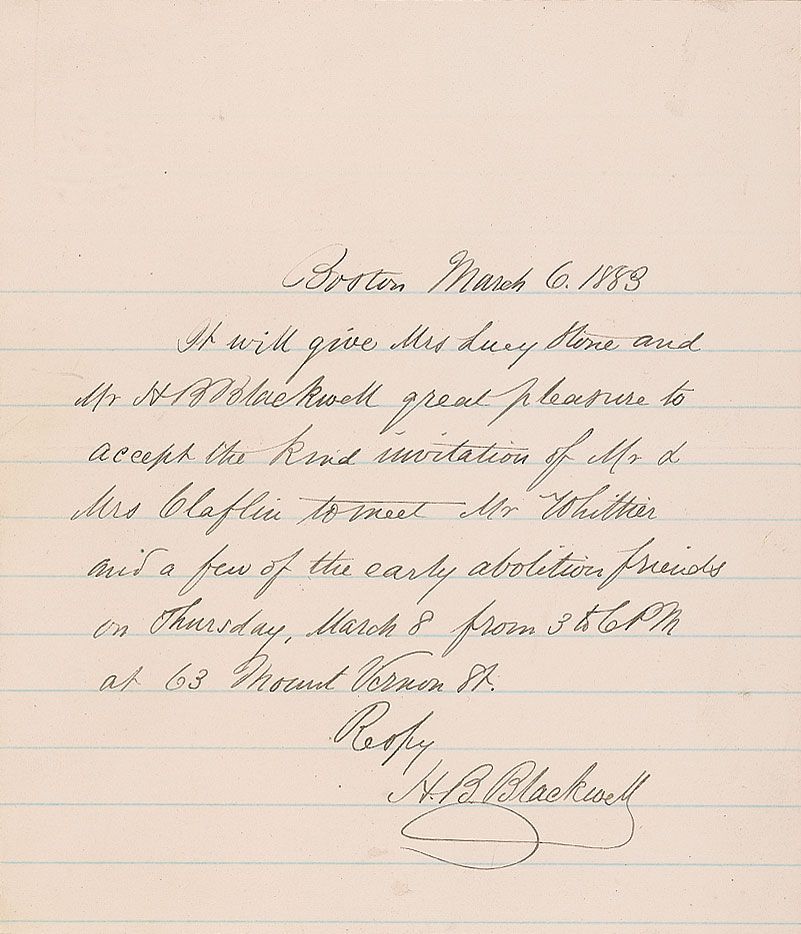 Boston March 6. 1883
It will give Mrs Lucy Stone and
Mr H B Blackwell great pleasure to
accept the kind invitation of Mr &
Mrs Claflin to meet Mr Whittier
and a few of the early abolition friends
on Thursday, March 8 from 3 to 6 PM
at 63 Mount Vernon St.
Respy
H. B. Blackwell